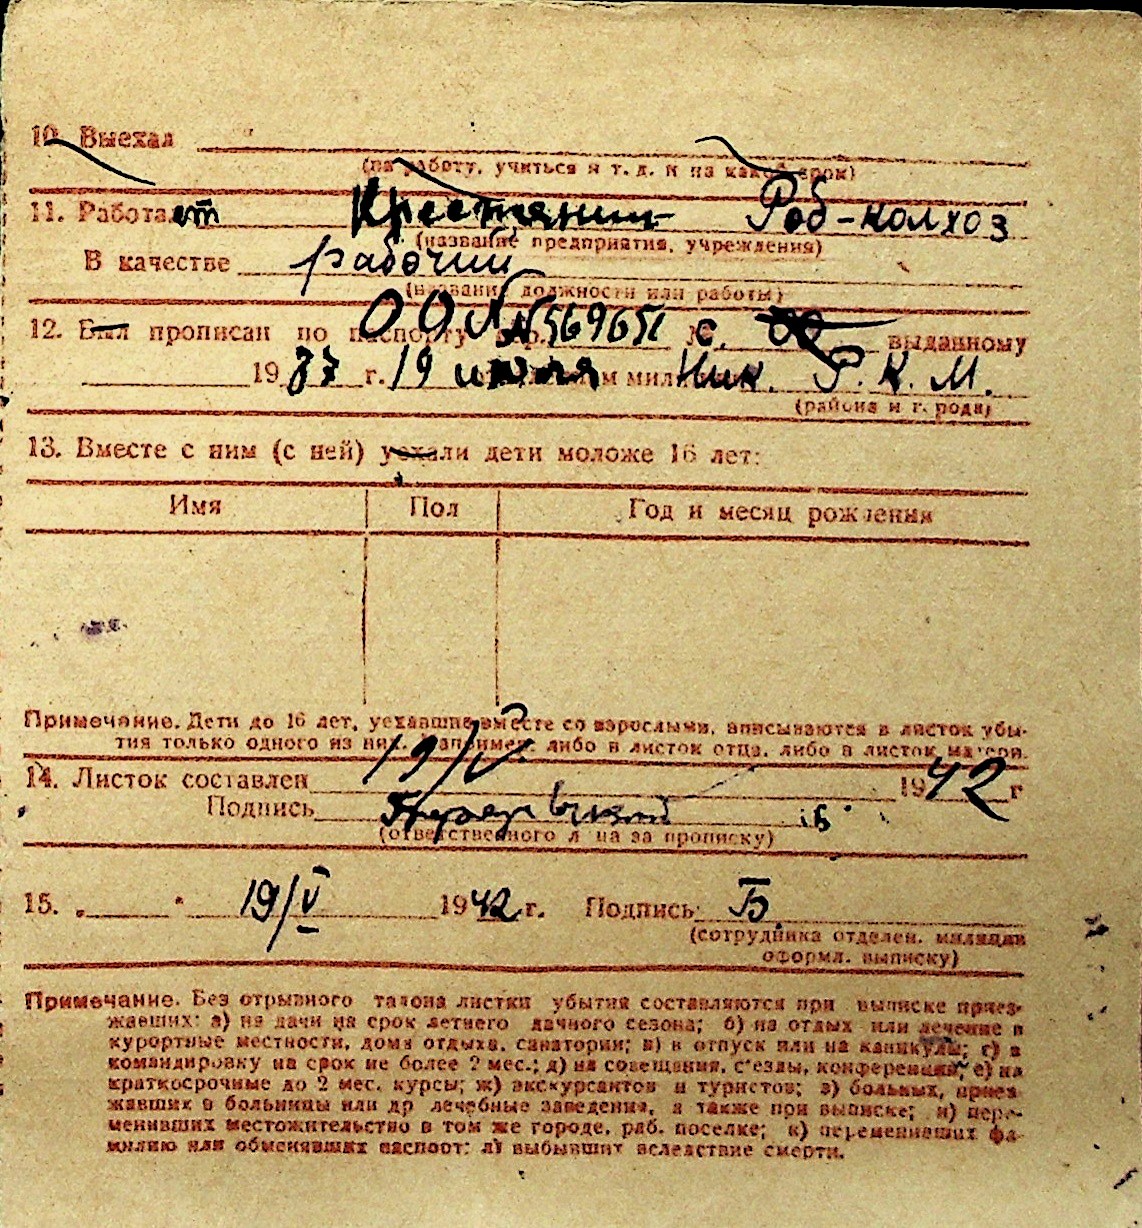 10. Выехал
(на работу, учиться и т. д. и на какой срок)
11. Работает Крестьянин Роб-колхоз
(название предприятия, учреждения)
В качестве рабочий
(название должности или работы)
12. Был прописан по паспорту 569651 с. выданному
19 37 г. 19 июля Ник. Р. К. М.
(района и города)
13. Вместе с ним (с ней) уехали дети моложе 16 лет:
Имя Пол Год и месяц рождения
Примечание. Дети до 16 лет, уехавшие вместе со взрослыми, вписываются в листок убы-
тия только одного из них. например: либо в листок отца, либо в листок матери.
14. Листок составлен 19/V 1942 г
Подпись
(ответственного лица за прописку)
15. 19/V 1942 г. Подпись Б.
(сотрудника отделен. милиции
оформл. выписку)
Примечание. Без отрывного талона листки убытия составляются при выписке приез-
жавших: а) на дачи на срок летнего дачного сезона; б) на отдых или лечение в
курортные местности, дома отдыха, санатории; в) в отпуск или на каникулы; г) в
командировку на срок не более 2 мес.; д) на совещания, с'езды, конференции; е) на
краткосрочные до 2 мес. курсы; ж) экскурсантов и туристов; з) больных, приез-
жавших в больницы или др лечебные заведения, а также при выписке; и) пере-
менивших местожительство в том же городе, раб. поселке; к) переменивших фа-
милию или обменявших паспорт; л) выбывших вследствие смерти.